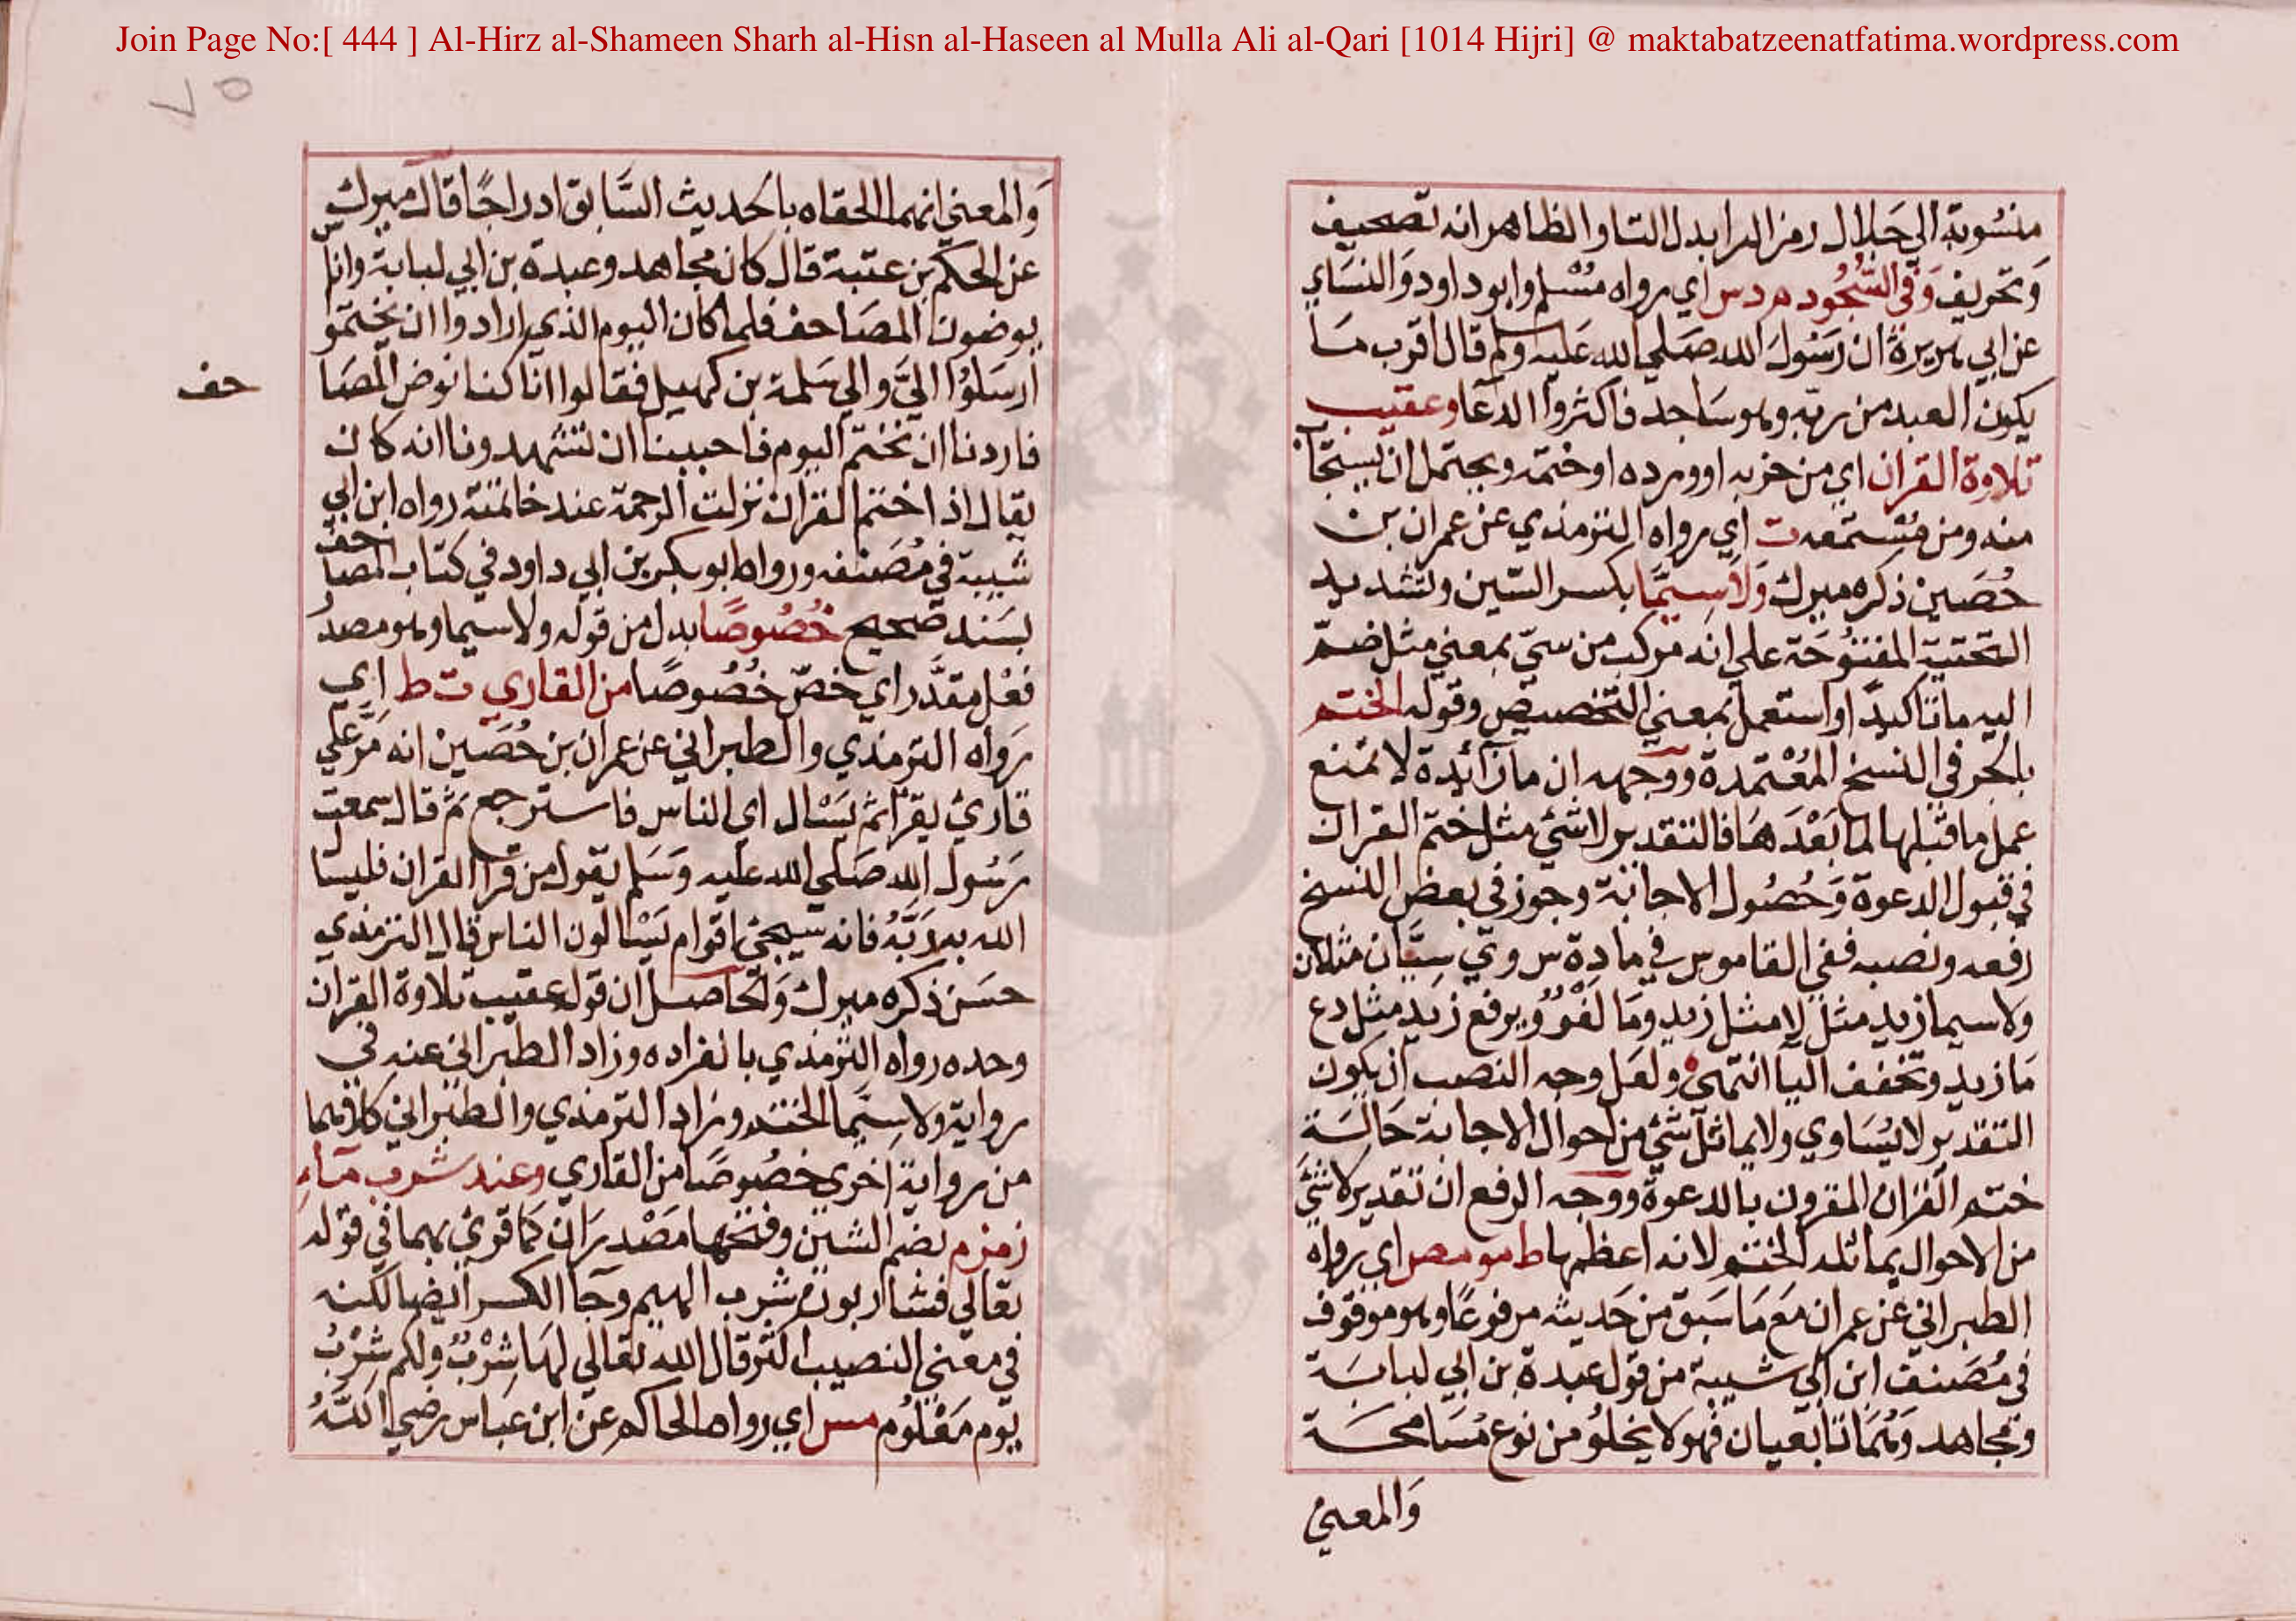 Join Page No:[ 444 ] Al-Hirz al-Shameen Sharh al-Hisn al-Haseen al Mulla Ali al-Qari [1014 Hijri] @ maktabatzeenatfatima.wordpress.com
٧٥
منسوبة الي جلال رمز الدابدل التا والظاهر انه تصحيف
وَتحريف وَفي السُّجُود م د س اي رواه مُسْلم وابو داود وَالنسَاي
عن ابي هريرة ان رَسُولَ الله صَلي الله عَليه وسلم قال اقرب مَا
يكون العبد من ربّه وهو سَاجد فاكثروا الدعا وعقيب
تلاوة القران اي من حزبه او ورده او ختمه ويحتمل ان يستجا
منه ومن مُسْتمعه ت اي رواه الترمذي عن عمران بن
حُصَين ذكره ميرك وَلاَ سيمَّا بكسر السّين وتشديد
التحتية المفتوُحَة علي انه مركب من سيّ بمعني مثل ضم
اليه ما تاكيدًا واستعمل بمعني التخصيص وقوله الختم
بالجر في النسخ المعْتمدة ووجهه ان ما زآئدة لا تمنع
عمل ما قبلها لما بَعْدَ هَا فالتقدير لا شئ مثل ختم القران
في قبول الدعوة وَحُصُول الاجابة وجوز في بعض النسخ
رفعه ونصبه ففي القاموس في مادة س و ي سِيَّان مثلان
ولا سيما زيد مثل لا مثل زيد ومَا لَغْوٌ ويرفع زَيد مثل دع
مَا زيد وتخفف اليا انتهي ولعل وجه النصب ان يكون
التقدير لا يُسَاوي ولا يماثل شئ من احوال الاجابة حَالَة
ختم القرآن المقرون بالدعوة ووجه الرفع ان تقديره لا شئ
من الاحوال يماثله الختم لانه اعظمها ط مو مص اي رواه
الطبراني عن عمران مَع مَا سَبق من حَديثه مرفوعًا وهو موقوف
في مُصَنف ابن ابي شيبة من قول عبدة بن ابي لبابَة
ومجاهد وَهُمَا تابعيان فهو لا يخلُو من نوع مُسَامحَة
وَالمعني
وَالمعني انهما الحقاه بالحديث السَّابق ادراجًا قال ميرك
عن الحكم بن عتبة قال كان مجاهد وعبدة بن ابي لبابة وناس
يوضون المصَاحف فلما كان اليوم الذي ارادوا ان يختمو
ارسَلُوا اليَّ والي سَلمة بن كهيل فقالوا انا كنا نوض المصَا
حف
فاردنا ان نختم اليوم فاحببنا ان تشهدونا انه كان
يقال اذا ختم القران نزلت الرحمة عند خاتمته رواه ابن ابي
شيبة في مُصَنفه ورواه ابو بكر بن ابي داود في كتاب المصَاحف
بسَند صَحيح خُصُوصًا بدل من قوله ولا سيما وهو مصدر
فعْل مقدَّر اي خصّ خُصُوصًا من القاري ت ط اي
رَواه الترمذي والطبراني عن عمران بن حُصَين انه مَرَّ علي
قارئ يقرَا ثم يَسْال اي الناس فاسترجع ثم قال سمعت
رَسُول الله صَلي الله عليه وَسَلم يقول من قرا القران فليسال
الله به لاَبَّهُ فانه سيجئ اقوام يَسْالون الناس قال الترمذي
حسَن ذكره ميرك وَالحاصل ان قوله عقيب تلاوة القران
وحده رواه الترمذي بانفراده وزاد الطبراني عنه في
رواية ولا سِيَّما الختم وزاد الترمذي والطبراني كلاهما
من رواية اخري خصُوصًا من القاري وعند شرب مآءِ
زمزم بضم الشين وفتحها مَصْدرَان كَما قرئ بهما في قوله
تعالي فشاربون شرب الهيم وجآ الكسر ايضا لكنه
في معني النصيب اكثر قال الله تعالي لهَا شِرْبٌ ولكم شِرْبُ
يَوم مَعْلُوم مس اي رواه الحاكم عن ابن عباس رضي اللهُ